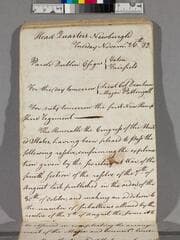 Head Quarters Newburgh
Tuesday Novem. 26th 82
Parole Dublin Csigns { Galen
{ Fairfield
For the day tomorrow { Lieut Col Dearborn
{ Major
For duty tomorrow the first New Hamp
shire Regiment
The Honorable the Congress of the United
States, having been pleased to pass the
following resolve, confirming the explana
tion given by the Secretary at War of the
fourth section of the resolve of the 7th of
August last published in the orders of the
30th of October, and making an addition to
the number of
resolve of the 7th of August the same is